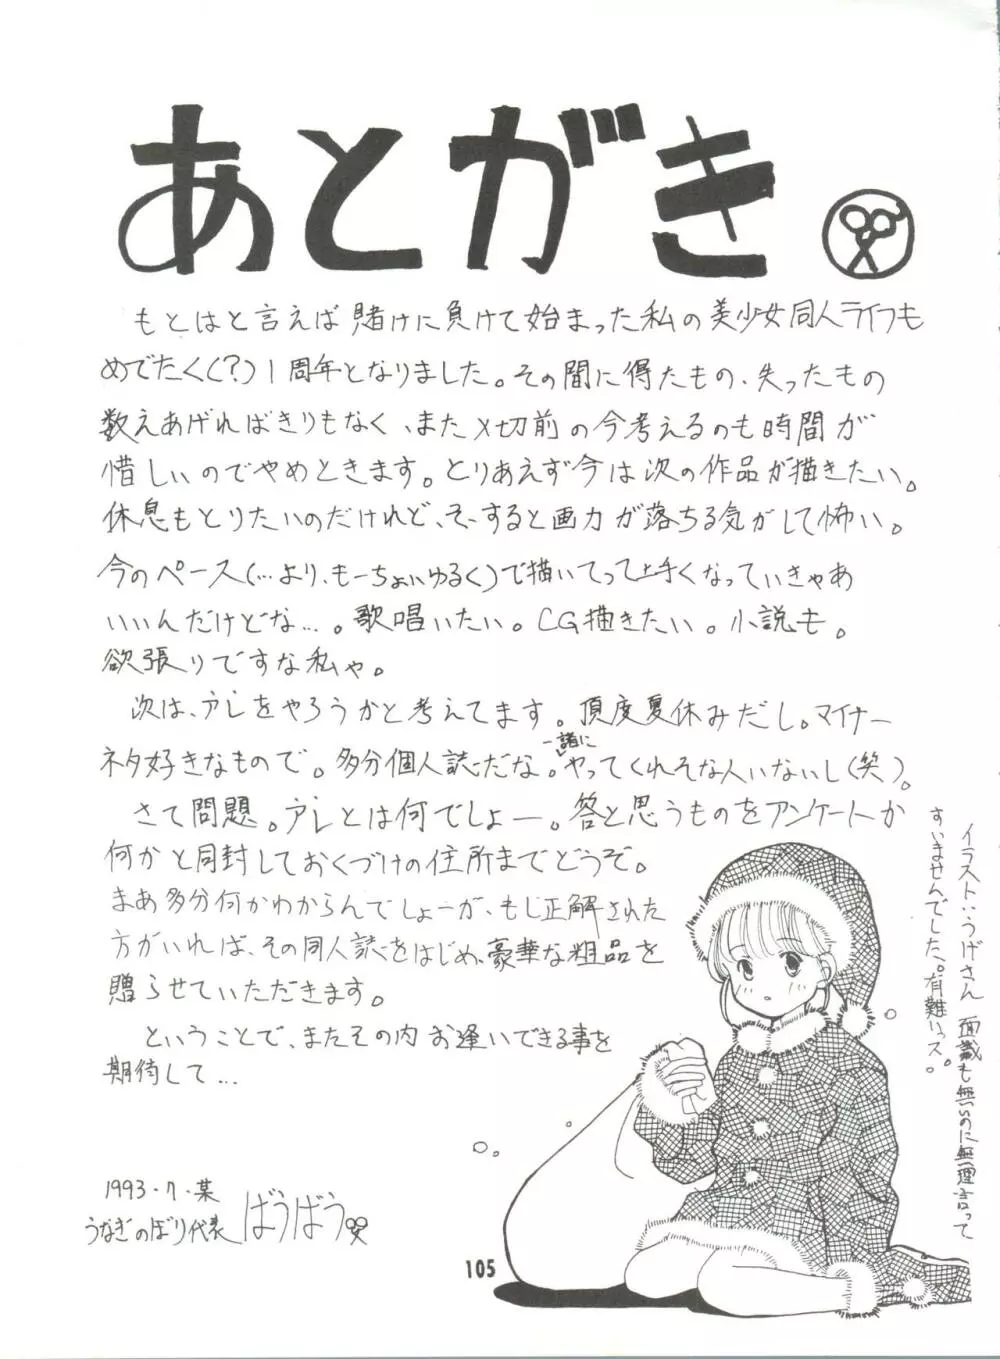 あとがき
もとはと言えば賭けに負けて始まった私の美少女同人ライフも
めでたく(?)1周年となりました。その間に得たもの、失ったもの
数えあげればきりもなく、また〆切前の今考えるのも時間が
惜しいのでやめときます。とりあえず今は次の作品が描きたい。
休息もとりたいのだけれど、そーすると画力が落ちる気がして怖い。
今のペース(…より、もーちょいゆるく)で描いてって上手くなっていきゃあ
いいんだけどな…。歌唱いたい。CG描きたい。小説も。
欲張りですな私ゃ。
次は、アレをやろうかと考えてます。頂度夏休みだし。マイナー
ネタ好きなもので。多分個人誌だな。一諸にやってくれそな人いないし(笑)。
さて問題。アレとは何でしょー。答と思うものをアンケートか
何かと同封しておくづけの住所までどうぞ。
まあ多分何かわからんでしょーが、もし正解された
方がいれば、その同人誌をはじめ、豪華な粗品を
贈らせていただきます。
ということで、またその内お逢いできる事を
期待して…
1993.7.某
うなぎのぼり代表 ばうばう
イラスト:うげさん 面識も無いのに無理言って
すいませんでした。有難いっス。
105